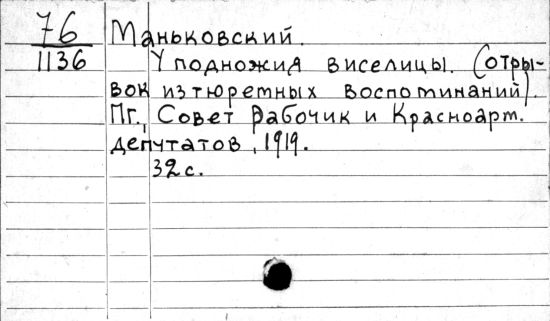 76 Маньковский.
1136 У подножия виселицы. (отры-
вок из тюремных воспоминаний).
Пг., Совет Рабочик и Красноарм.
депутатов, 1919.
32 с.